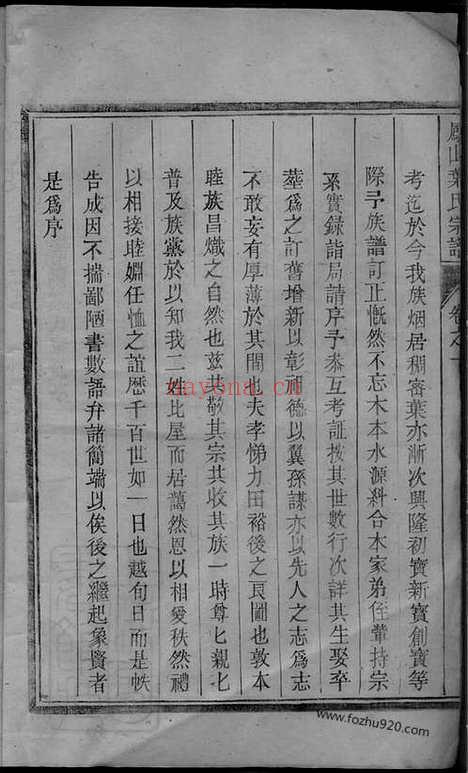 鳳山葉氏宗譜 卷之一
考迄於今我族烟居稠審葉亦漸次興隆初寳新寳創寳等
際予族譜訂止慨然不忘木本水源糾合本家弟侄輩持宗
系實錄詣局請序予叅互考証按其世數行次詳其生娶卒
塟爲之訂舊增新以彰祖德以翼孫謀亦以先人之志爲志
不敢妄有厚薄於其間也夫孝悌力田裕後之良圖也敦本
睦族昌熾之自然也兹共敬其宗共收其族一時尊匕親匕
普及族黨於以知我二姓比屋而居藹然恩以相愛秩然禮
以相接睦婣任恤之誼歷千百世如一日也越旬日而是帙
告成因不揣鄙陋書數語弁諸簡端以俟後之繼起象賢者
是爲序
nayona.cn
www.fozhu920.com